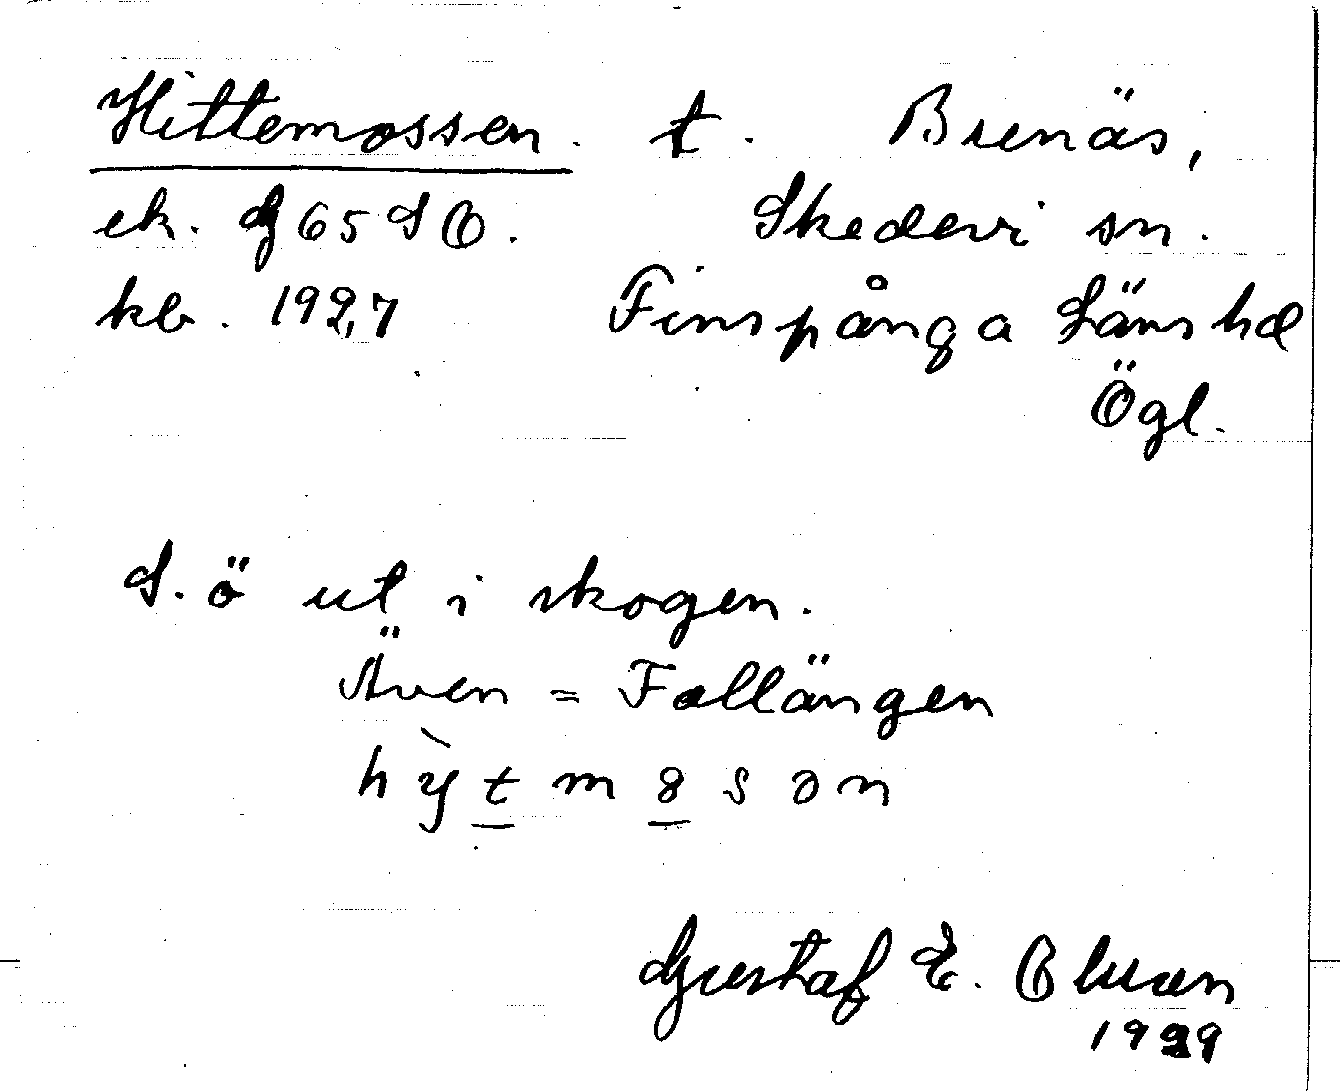 Hittemossen. t. Brenäs,
ek. G 65 S O. Skedevi sn.
kb. 192,7 Finspånga Läns hd
Ögl.
S. ö ut i skogen.
Även = Fallängen
hỳtmȣsən
Gustaf E.
1929